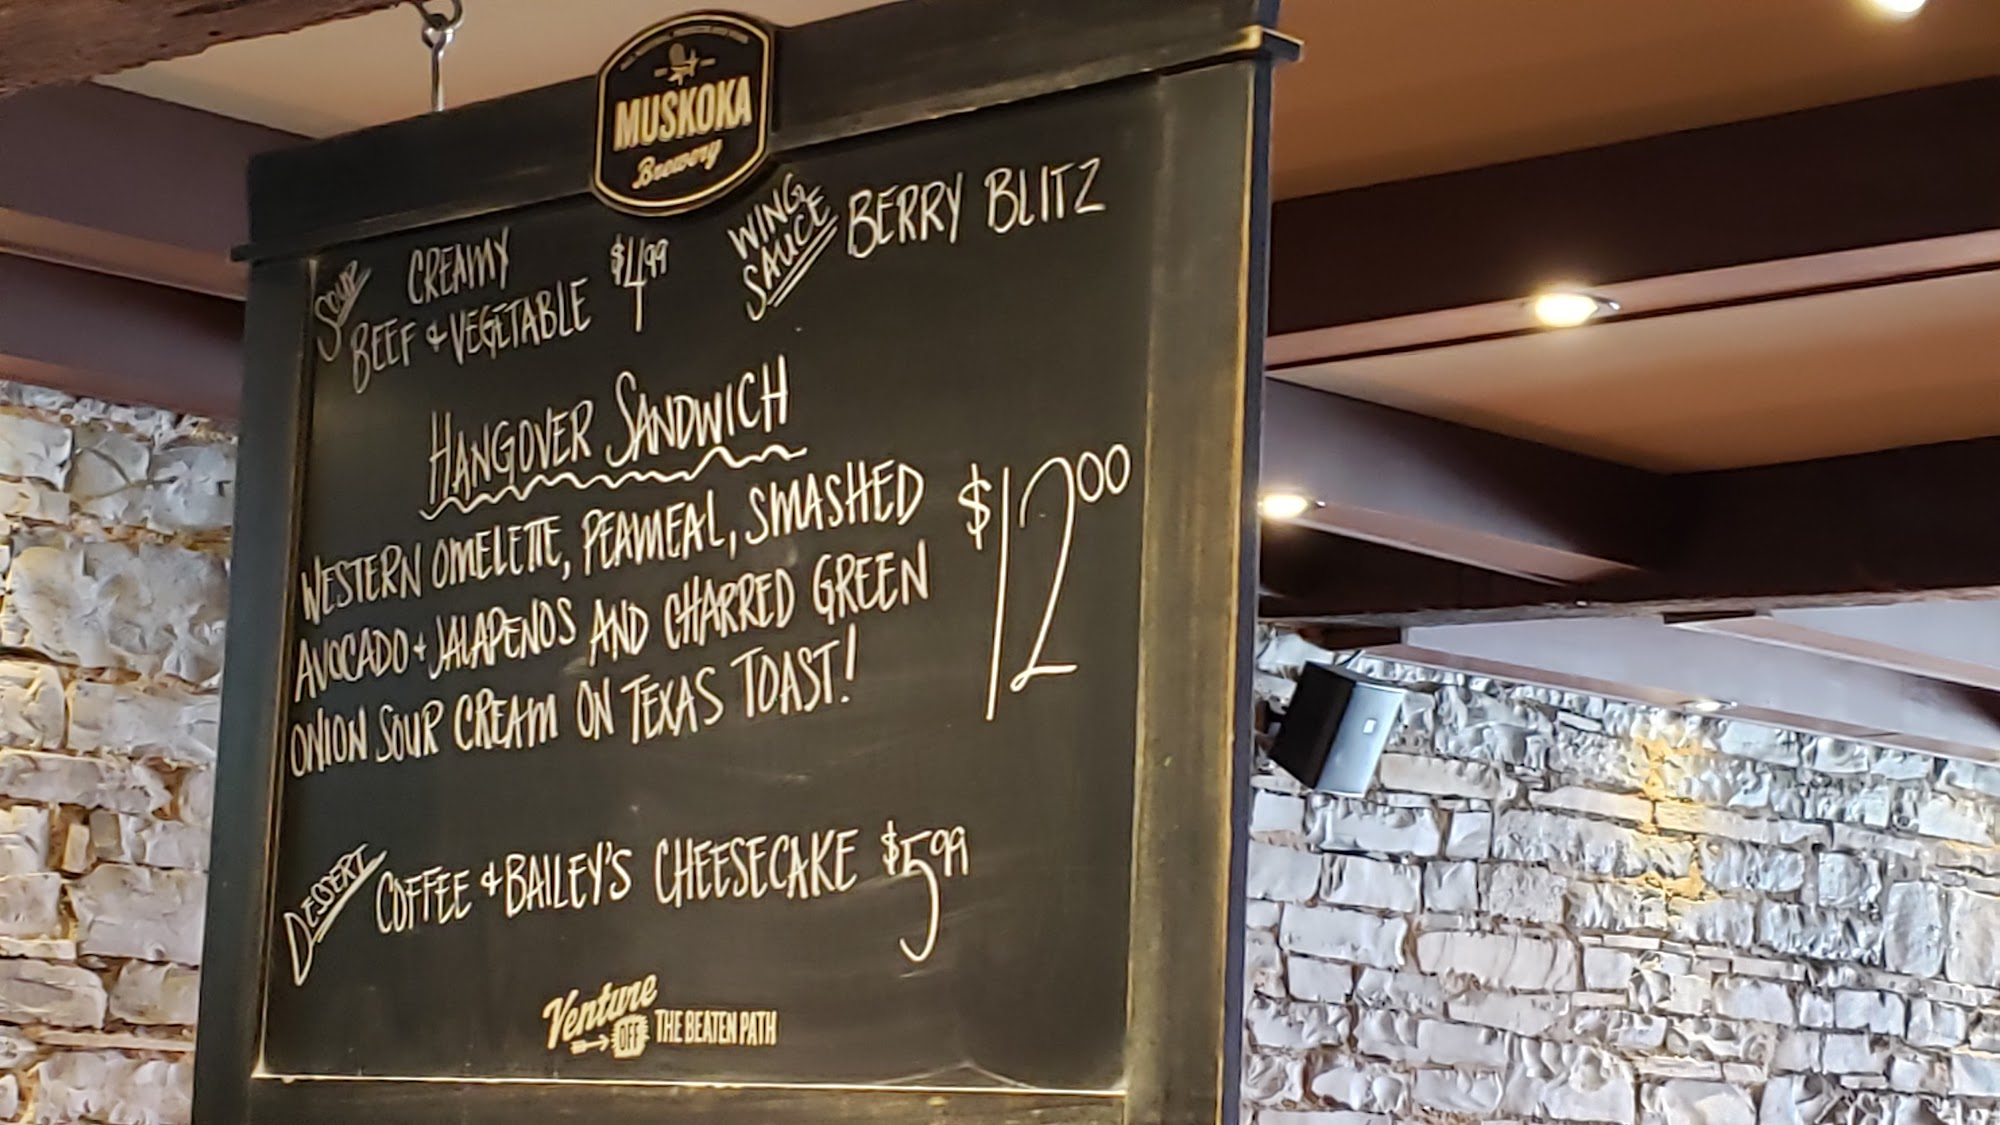 MUSKOKA
Brewery
SOUP
CREAMY
BEEF & VEGETABLE $4.99
WING
SAUCE
BERRY BLITZ
HANGOVER SANDWICH
WESTERN OMELETTE, PEAMEAL, SMASHED
AVOCADO + JALAPENOS AND CHARRED GREEN
ONION SOUR CREAM ON TEXAS TOAST!
$12.00
DESSERT
COFFEE & BAILEY'S CHEESECAKE $5.99
Venture
OFF THE BEATEN PATH